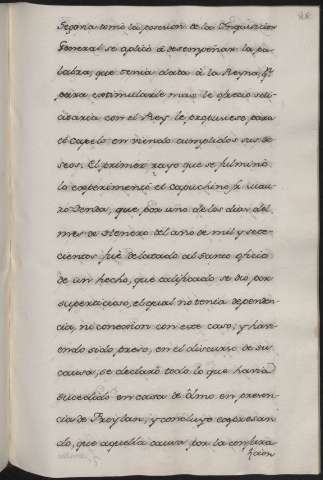 Segovia tomó la posesion de la Inquisicion
General se aplicó à desempeñar la pa-
labra, que tenia dada à la Reyna, qe.
para estimularle mas le ofreció soli-
citaria con el Rey le propusiese, para
el Capelo en viendo cumplidos sus de-
seos. El primer rayo que se fulminó
lo experimentó el Capuchino fr. Mau-
ro Tenda, que por uno de los dias del
mes de Henero del año de mil y sete-
cientos fue delatado al santo oficio
de un hecho, que calificado se dio por
supersticioso, el qual no tenia dependen-
cia, ni conexion con este caso; y havi-
endo sido preso, en el discurso de su
causa, se declaró todo lo que havia
sucedido en casa de Olmo en presen-
cia de Froylan; y concluyó expresan-
do, que aquella causa por la conjura